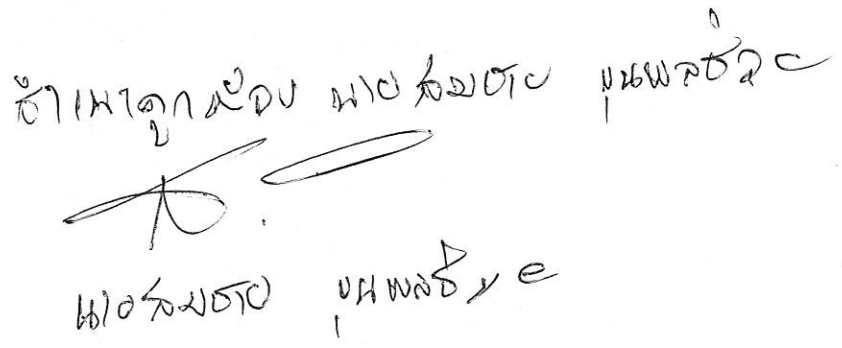 สำเนาถูกต้อง นายสมชาย ขุนพลช่วย
นายสมชาย ขุนพลช่วย